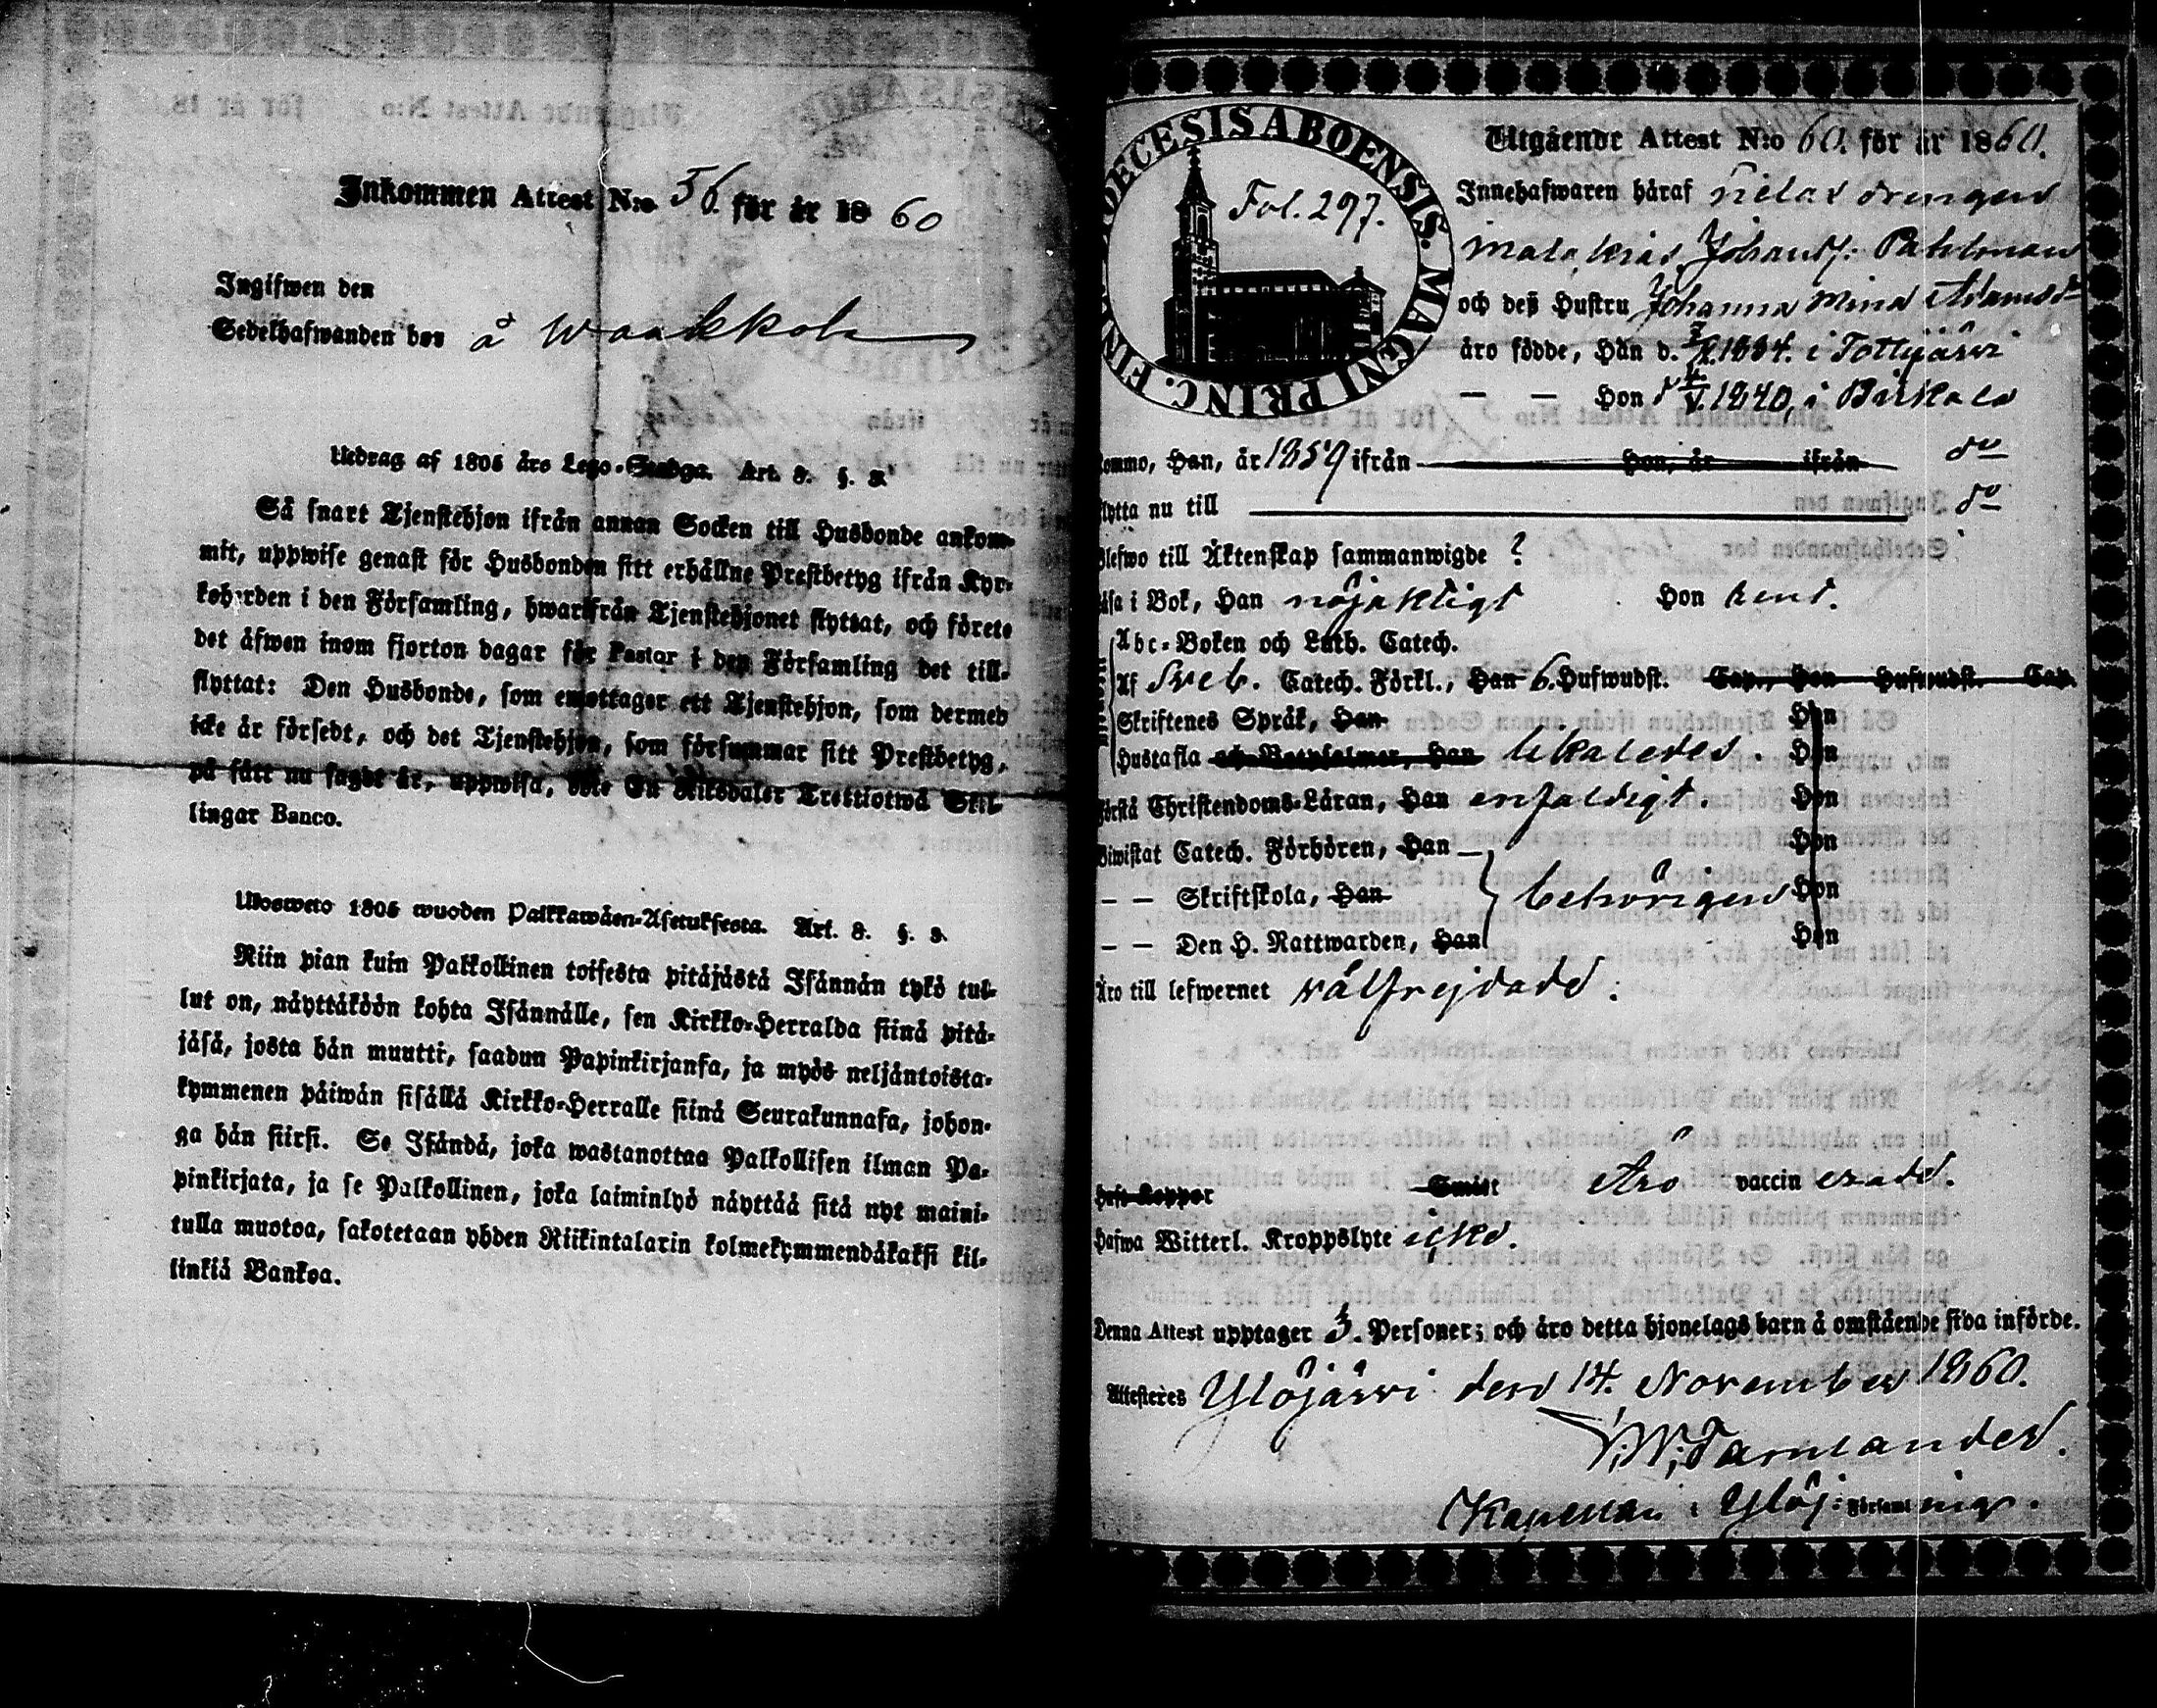 Inkommen Attest N:o 56. för år 1860
Ingifwen den
Sedelhafwanden bor å Waakkola
Utdrag af 1805 års Lego-Stadga. Art. 8. §. 3.
Så snart Tjenstehjon ifrån annan Socken till Husbonde ankom-
mit, uppwise genast för Husbonden sitt erhållne Prestbetyg ifrån Kyr-
koherden i den Församling, hwarifrån Tjenstehjonet flyttat, och förete
det äfwen inom fjorton dagar för Pastor i den Församling det till-
flyttat: Den Husbonde, som emottager ett Tjenstehjon, som dermed
icke är försedt, och det Tjenstehjon, som försummar sitt Prestbetyg,
på sätt nu sagdt är, uppwisa, böte En Riksdaler Trettiotwå Skil-
lingar Banco.
Ulosweto 1805 wuoden Palkkawäen-Asetuksesta. Art. 8. §. 3.
Niin pian kuin Palkollinen toisesta pitäjästä Isännän tykö tul-
lut on, näyttäköön kohta Isännälle, sen Kirkko-Herralda siinä pitä-
jäsä, josta hän muutti, saadun Papinkirjansa, ja myös neljäntoista-
kymmenen päiwän sisällä Kirkko-Herralle siinä Seurakunnasa, johon-
ga hän siirsi. Se Isändä, joka wastanottaa Palkollisen ilman Pa-
pinkirjata, ja se Palkollinen, joka laiminlyö näyttää sitä nyt maini-
tulla muotoa, sakotetaan yhden Riikintalarin kolmekymmendäkaksi kil-
linkiä Bankoa.
DIOECESIS ABOENSIS. MAGNI PRINC. FINL.
Fol. 297.
Utgående Attest N:o 60. för år 1860.
Innehafwaren häraf
Johansf: Pahlman
och deß Hustru Johanna Adamsd:
äro födde, Han d. 1834. i Tottijärvi
— — Hon 1840, i Birkala
kommo, Han, år 1859 ifrån Hon, år ifrån do
flytta nu till do
blefwo till Äktenskap sammanwigde ?
läsa i Bok, Han nöjaktigt Hon
Abc-Boken och Luth. Catech.
Af Sveb. Catech. Förkl., Han 6. Hufwudst. Cap., Hon Hufwudst. Cap.
Skriftenes Språk, Han Hon
Hustafla och Botpsalmer, Han likaledes. Hon
förstå Christendoms-Läran, Han enfaldigt. Hon
biwistat Catech. Förhören, Han — Hon
— — Skriftskola, Han behörigen Hon
— — Den H. Nattwarden, Han Hon
Äro till lefwernet välfrejdade.
haft Koppor Smitt Äro vaccinerade.
hafwa Witterl. Kroppslyte icke.
Denna Attest upptager 3. Personer; och äro detta hjonelags barn å omstående sida införde.
Attesteres Ylöjärvi den 14. November 1860.
Kapellan i Ylöj: Församling.